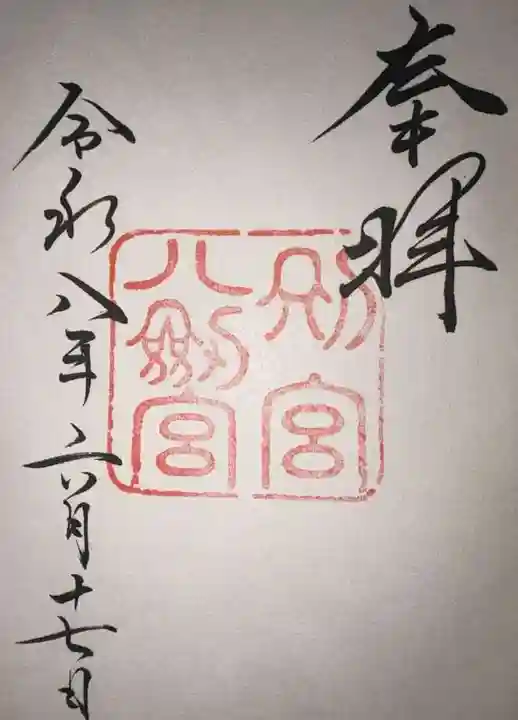 奉拝
別宮
八剱宮
令和八年六月十七日